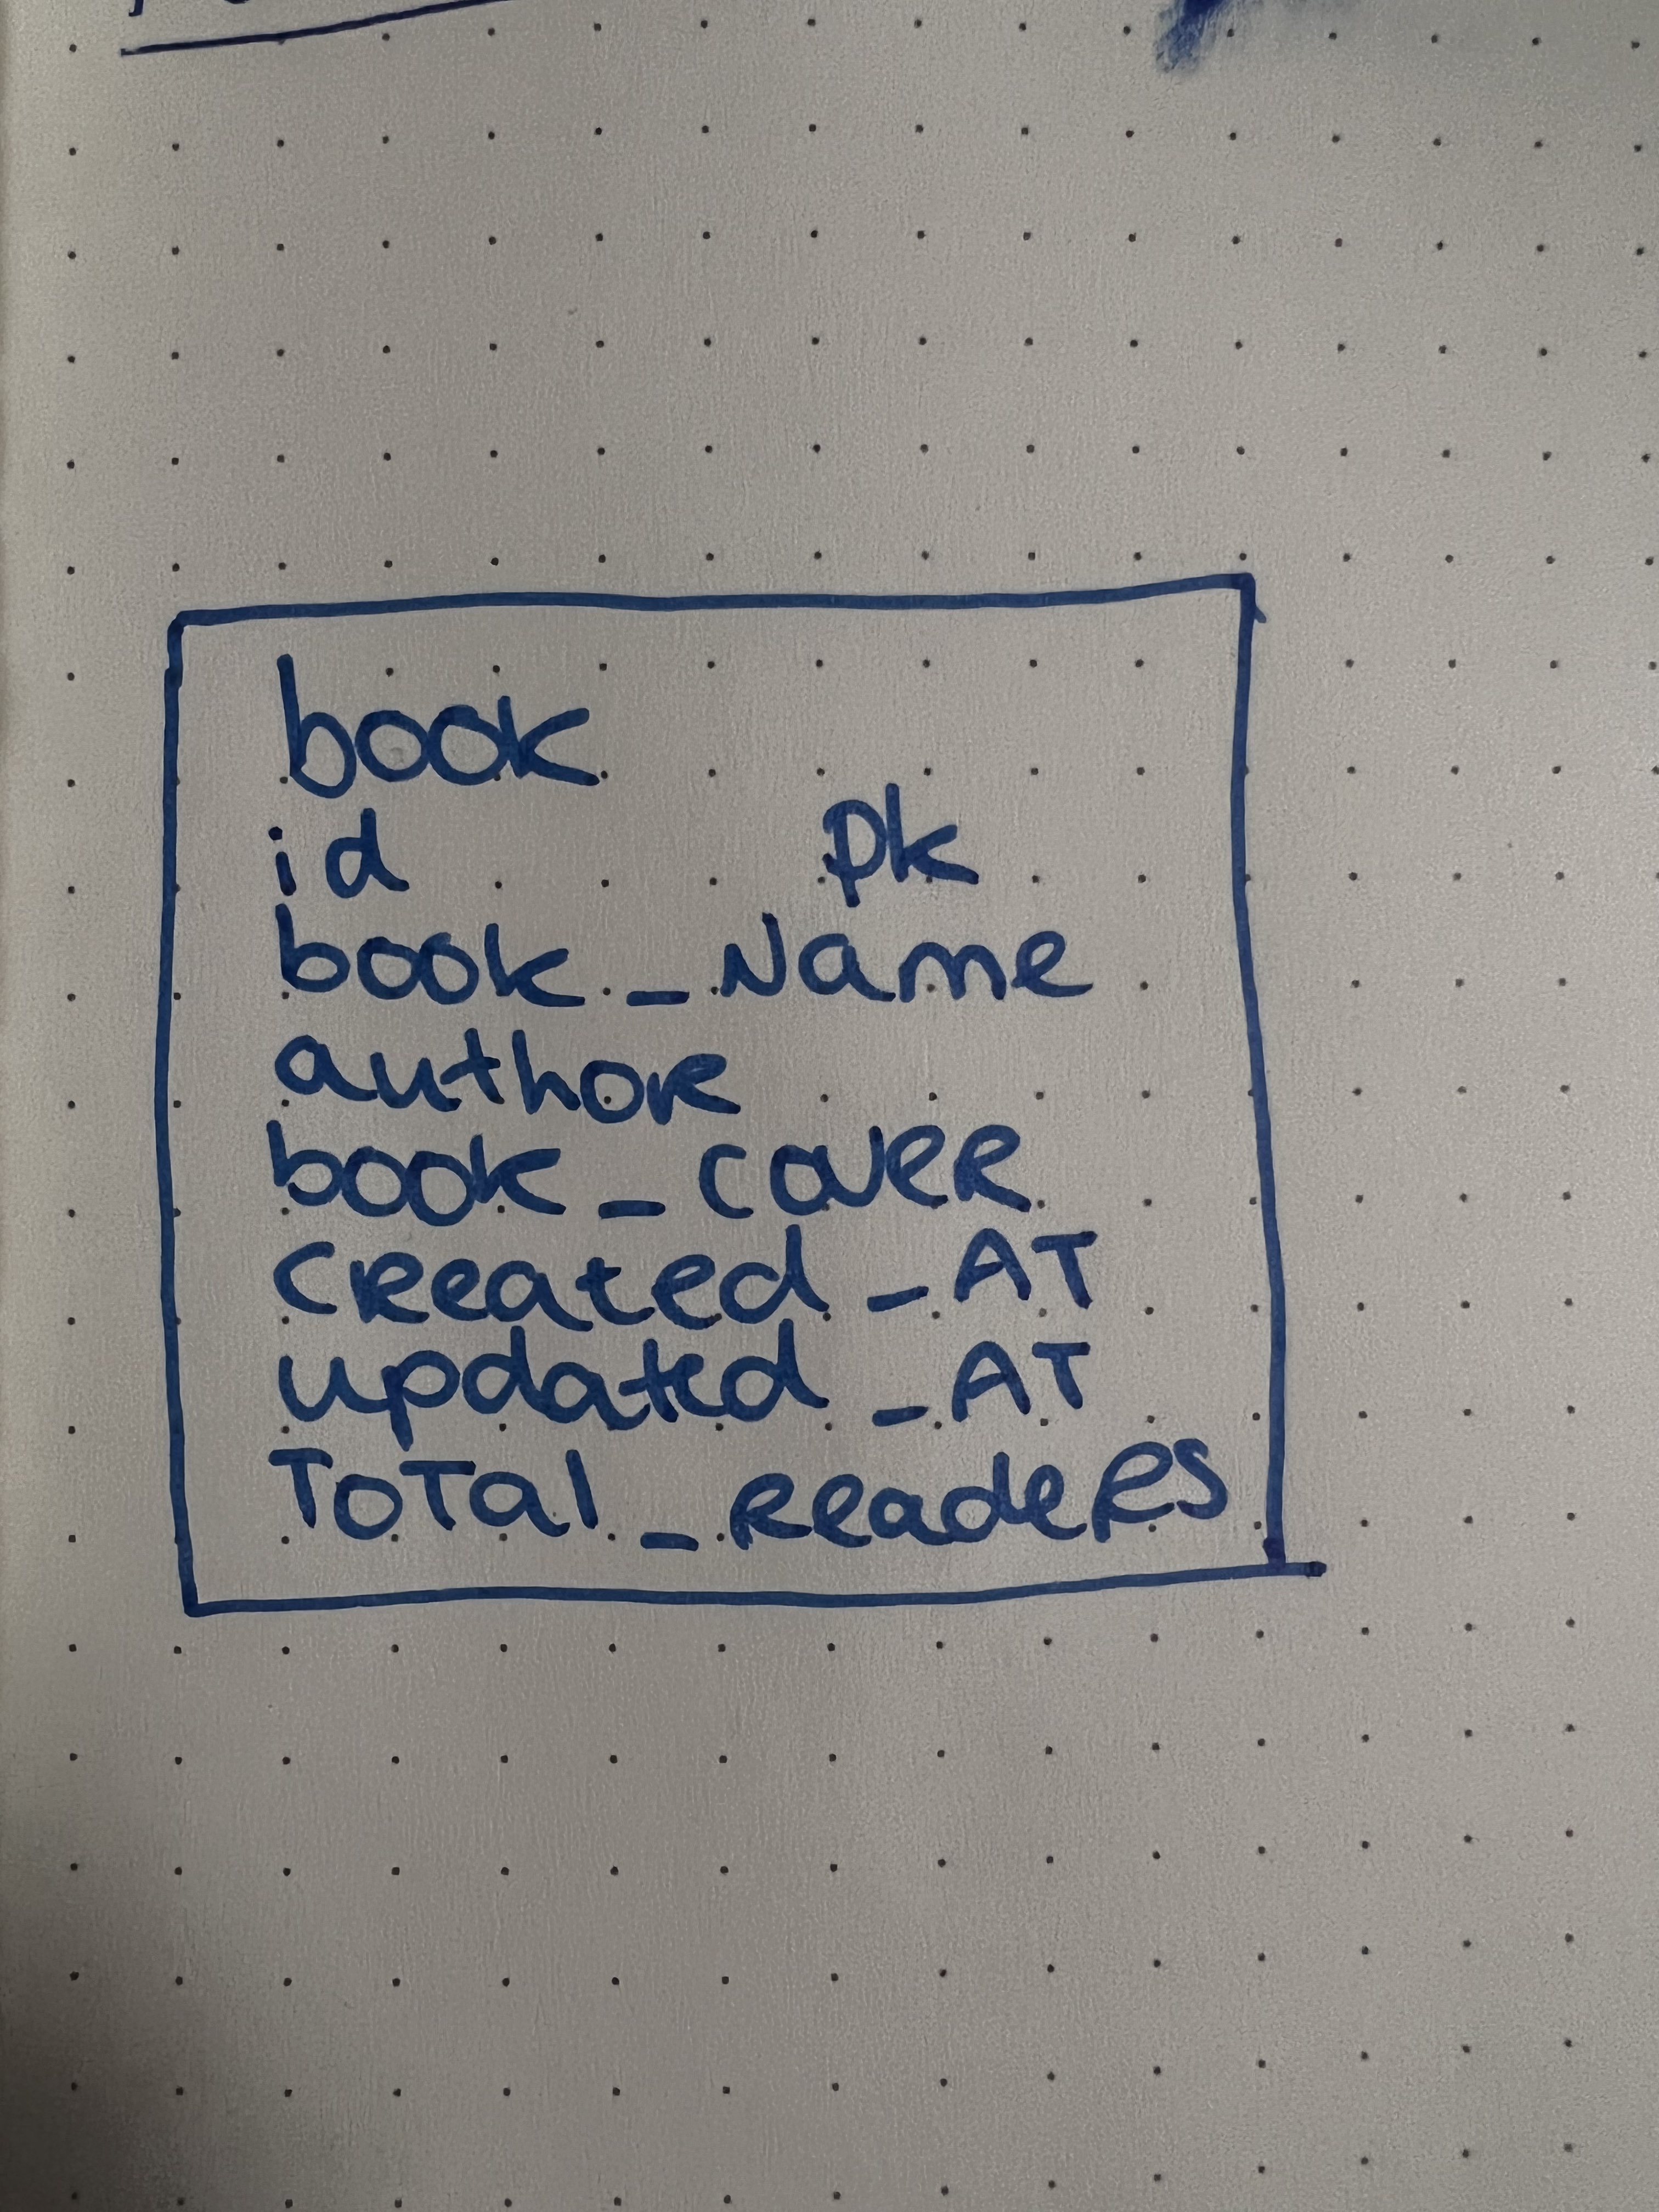 book
id pk
book_Name
author
book_cover
created_AT
updated_AT
Total_readers